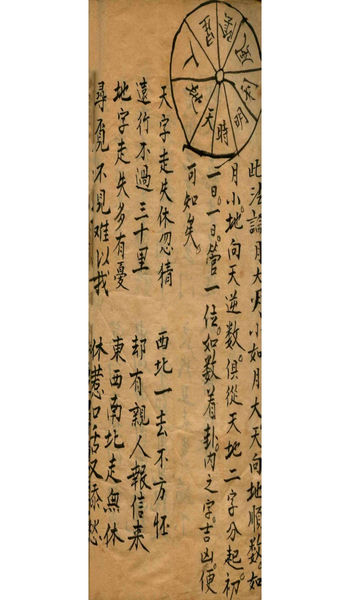 天
時
明
人
此法論月大月小如月大天向地順數如
月小地向天逆數俱從天地二字分起初
一日一日管一位如數着卦内之字吉凶便
可知矣
天字走失休忽猜 西北一去不方恠
遠行不過三十里 却有親人報信来
地字走失多有憂 東西南北走無休
尋覓不見難以找 休惹口舌又添愁